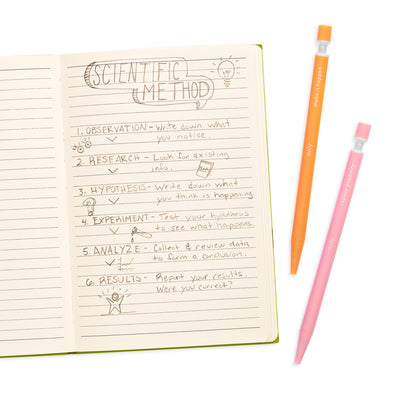 SCIENTIFIC
METHOD
1. OBSERVATION - Write down what
you notice.
2. RESEARCH - Look for existing
info.
3. HYPOTHESIS - Write down what
you think is happening.
4. EXPERIMENT - Test your hypothesis
to see what happens.
5. ANALYZE - Collect & review data
to form a conclusion.
6. RESULTS - Report your results.
Were you correct?
make it happen